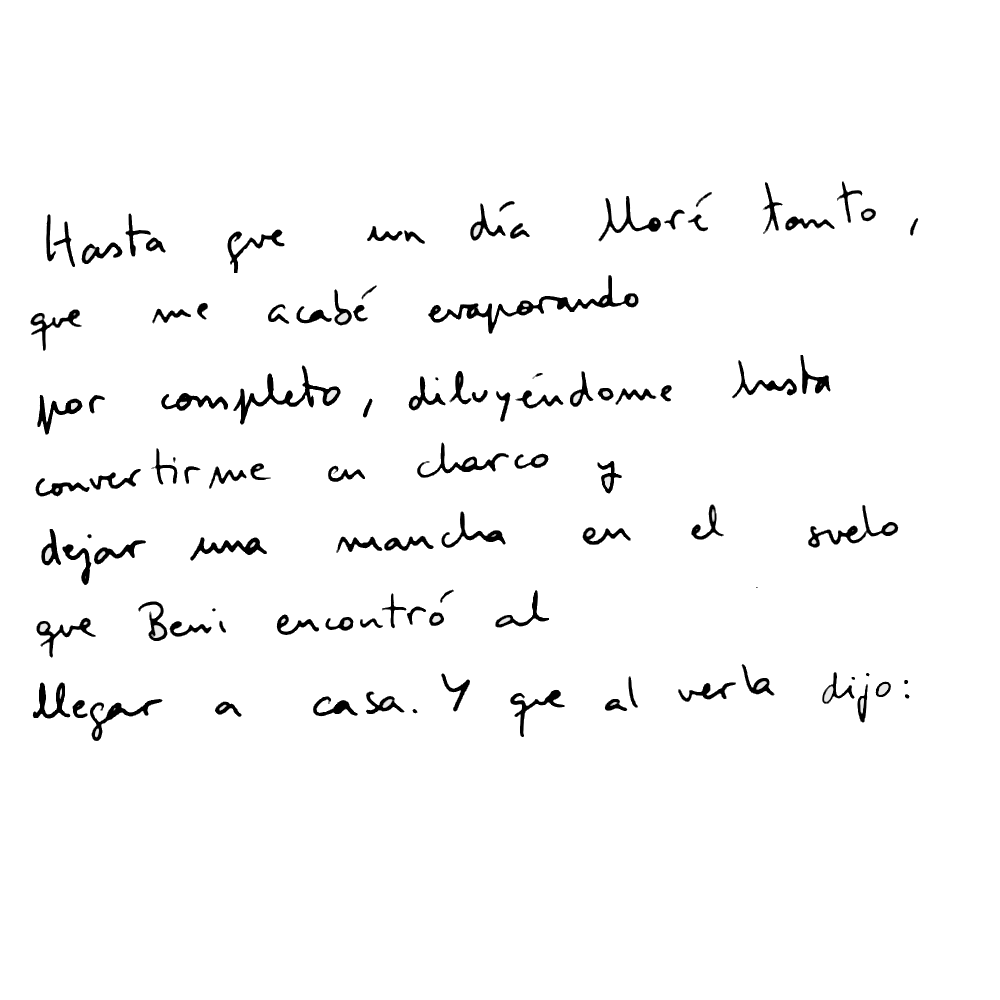 Hasta que un día lloré tanto,
que me acabé evaporando
por completo, diluyéndome hasta
convertirme en charco y
dejar una mancha en el suelo
que Beni encontró al
llegar a casa. Y que al verla dijo: